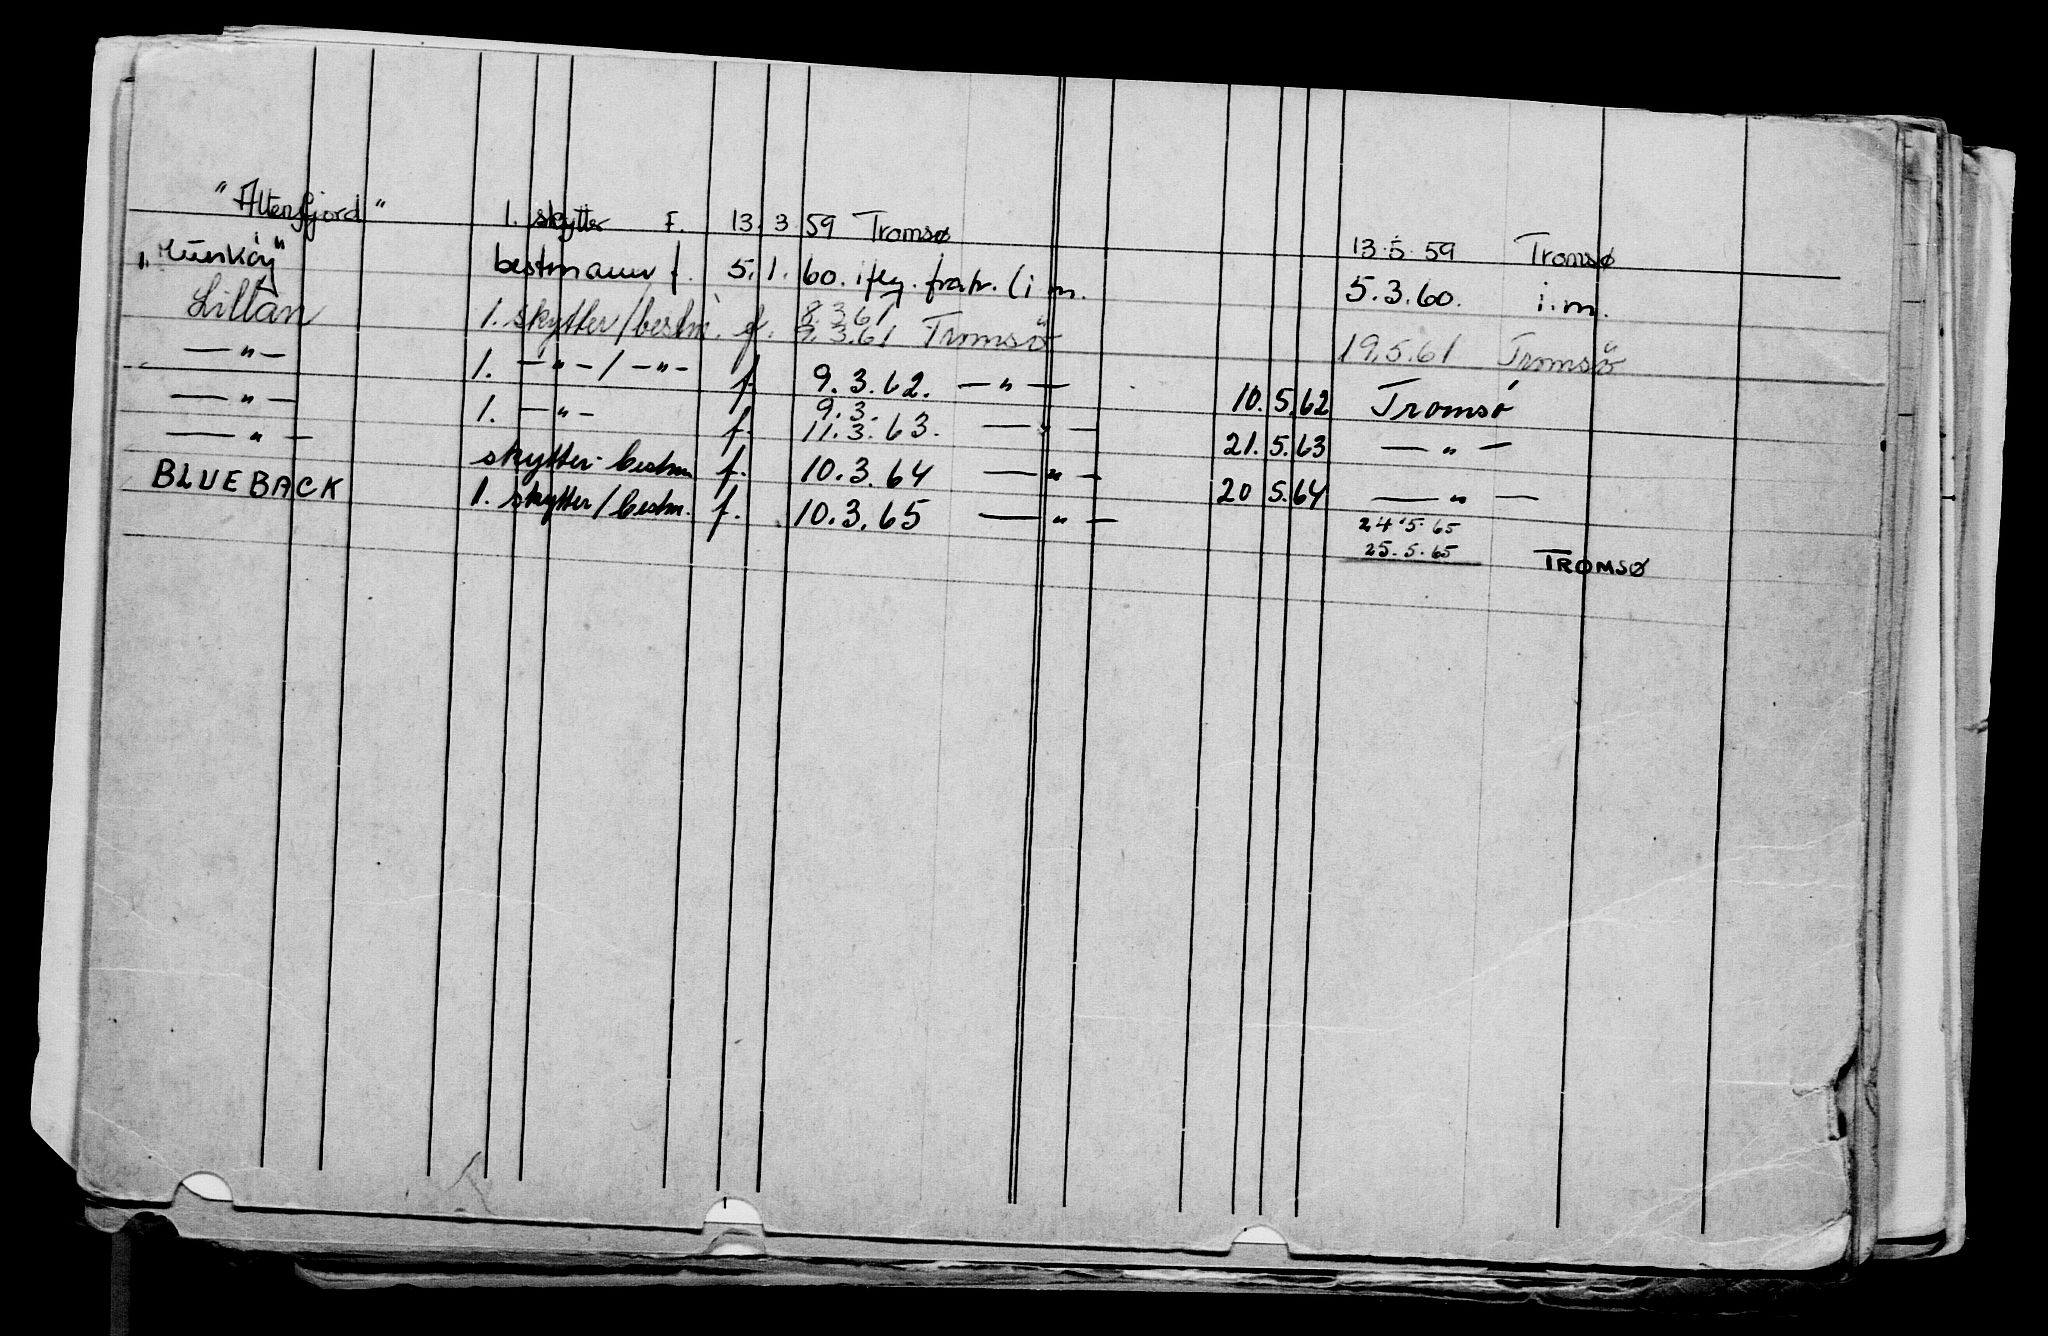 "Altenfjord" 1. skytter F. 13. 3. 59 Tromsø 13.5.59 Tromsø
bestmann f. 5. 1. 60. ifly. fratr. (i m. 5.3.60. i.m.
Lillan 1. skytter/bestm. f. 8 3 61
9.3.61 Tromsö 19.5.61 Tromsö
—"— 1. —"—/—"— f. 9. 3. 62. —"— 10. 5. 62 Tromsø
—"— 1. —"— f. 9. 3.
11. 3. 63. —"— 21. 5. 63 —"—
—"— skytter-bestm f. 10. 3. 64 —"— 20 5. 64 —"—
BLUEBACK 1. skytter/bestm. f. 10. 3. 65 —"— 24.5.65
25.5.65 TROMSØ